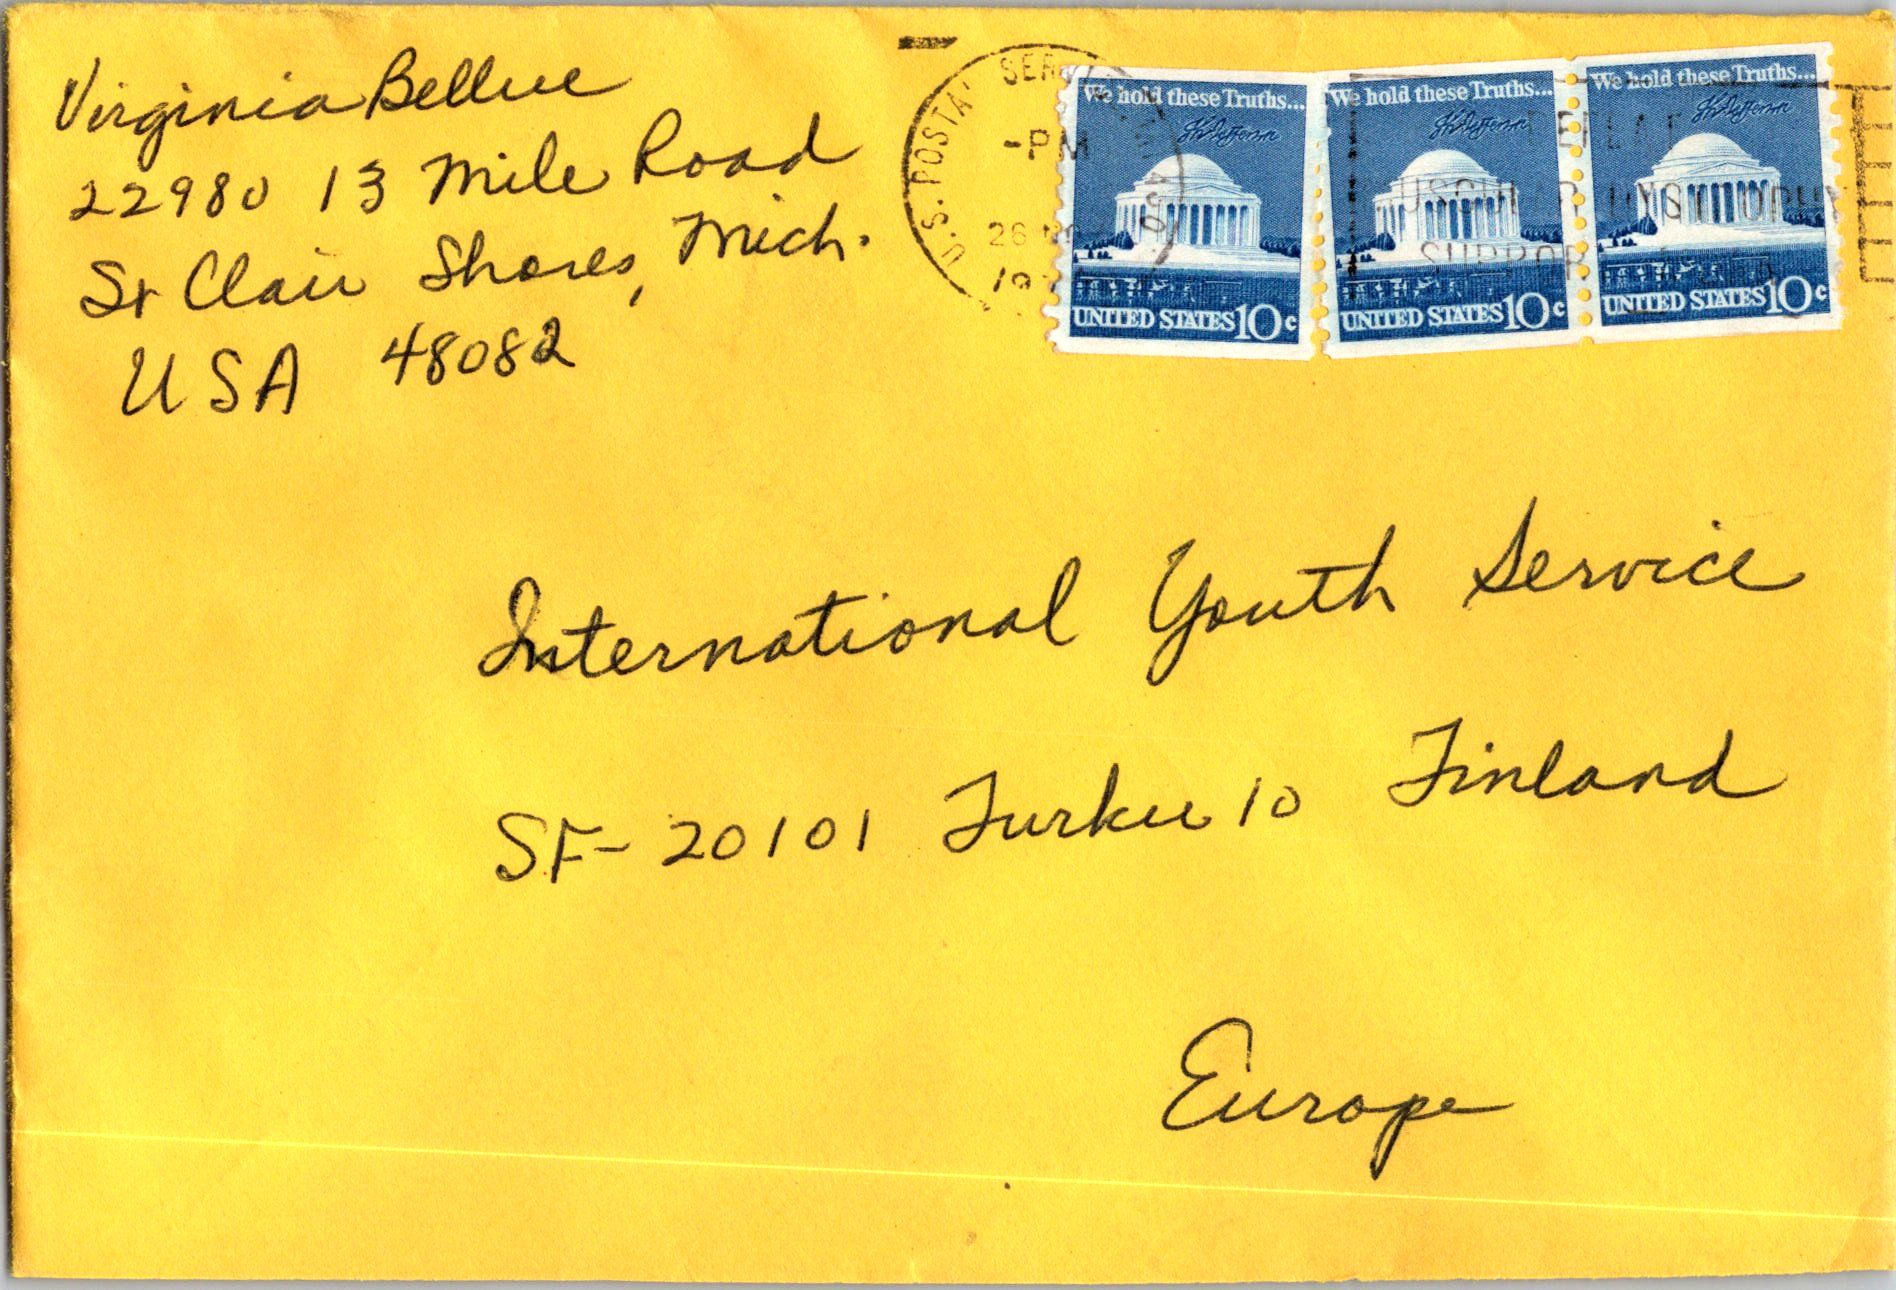 Virginia Bellue
22980 13 Mile Road
St Clair Shores, Mich.
USA 48082
U.S. POSTAL SER
-PM
26
We hold these Truths...
Th Jefferson
UNITED STATES 10c
We hold these Truths...
Th Jefferson
UNITED STATES 10c
We hold these Truths...
Th Jefferson
UNITED STATES 10c
SUPPOR
International Youth Service
SF-20101 Turku 10 Finland
Europe